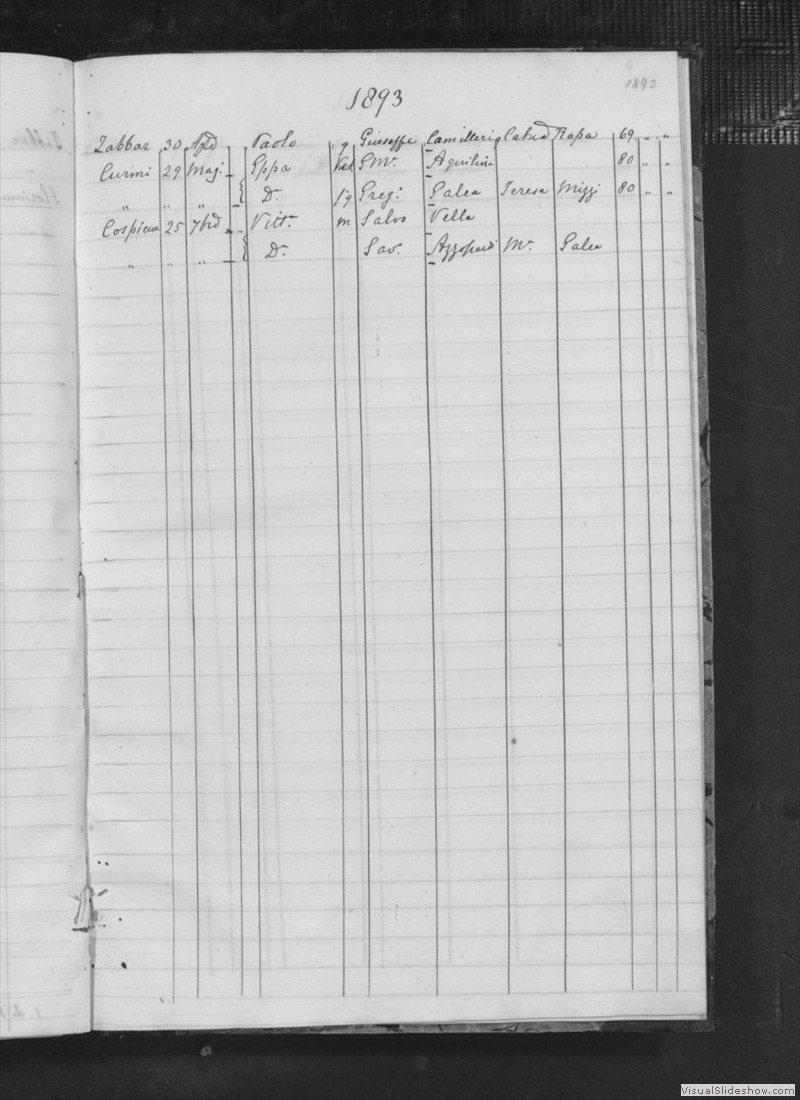 1893
1893
Zabbar 30 Apl Paolo g Giuseppe Camilleri g Catna Rapa 69 „ „
Curmi 29 Maj. Gppa Ved GMa. Aquilina 80 „ „
„ „ „ { Da. fg Greg. Galea Teresa Mizzi 80 „ „
Cospicua 25 7bre Vitta. m Salvo Vella
„ „ „ { Da. Sav. Azzopardi Ma. Galea
VisualSlideshow.com